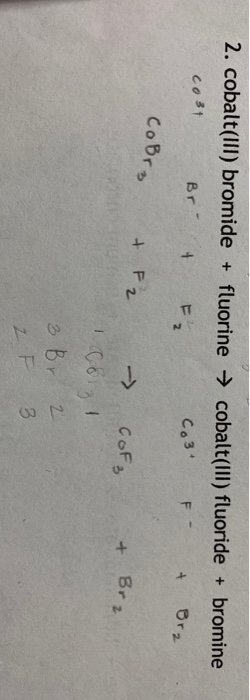 2. cobalt(III) bromide + fluorine → cobalt(III) fluoride + bromine
Co3+ Br- + F2 Co3+ F- + Br2
CoBr3 + F2 → CoF3 + Br2
1 1
3 Br 2
2 F 3